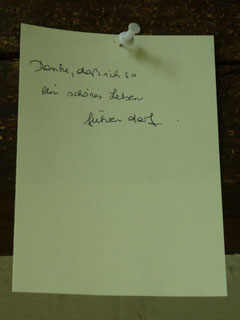 Danke, daß ich so
ein schönes Leben
führen darf.